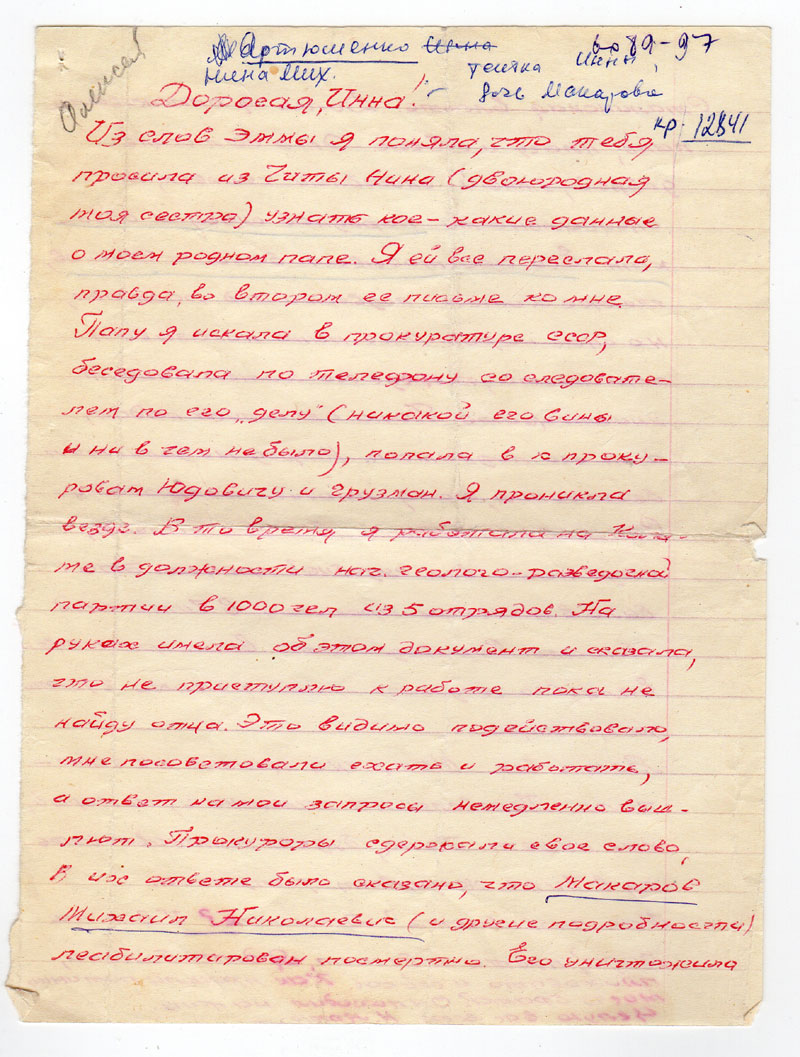 Артюменко Инна 60 89-97
Нина Мих. тётка Инны,
дочь Макарова
Алексей
Дорогая, Инна!
кр. 12841
Из слов Эммы я поняла, что тебя
просила из Читы Нина (двоюродная
моя сестра) узнать кое-какие данные
о моем родном папе. Я ей все переслала,
правда, во втором ее письме ко мне.
Папу я искала в прокуратуре СССР,
беседовала по телефону со следовате-
лем по его „делу" (никакой его вины
и ни в чем не было), попала в к проку-
рорам Юдовичу и Грузман. Я проникла
везде. В то время я работала на Колы-
ме в должности нач. геолого-разведочной
партии в 1000 чел из 5 отрядов. На
руках имела об этом документ и сказала,
что не приступлю к работе пока не
найду отца. Это видимо подействовало,
мне посоветовали ехать и работать,
а ответ на мои запросы немедленно выш-
лют. Прокуроры сдержали свое слово,
В их ответе было сказано, что Макаров
Михаил Николаевич (и другие подробности)
реабилитирован посмертно. Его уничтожила